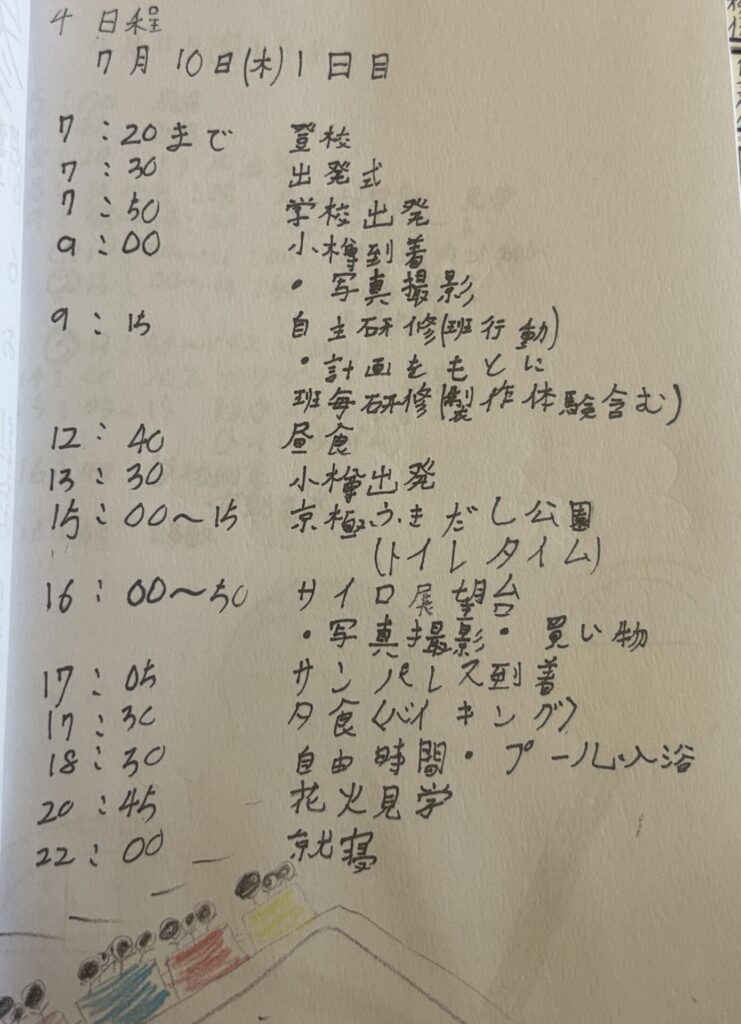 4 日程
7月10日(木)1日目
7:20まで 登校
7:30 出発式
7:50 学校出発
9:00 小樽到着
・写真撮影
9:15 自主研修(班行動)
・計画をもとに
班毎研修(製作体験含む)
12:40 昼食
13:30 小樽出発
15:00〜15 京極ふきだし公園
(トイレタイム)
16:00〜50 サイロ展望台
・写真撮影・買い物
17:05 サンパレス到着
17:30 夕食(バイキング)
18:30 自由時間・プール・入浴
20:45 花火見学
22:00 就寝